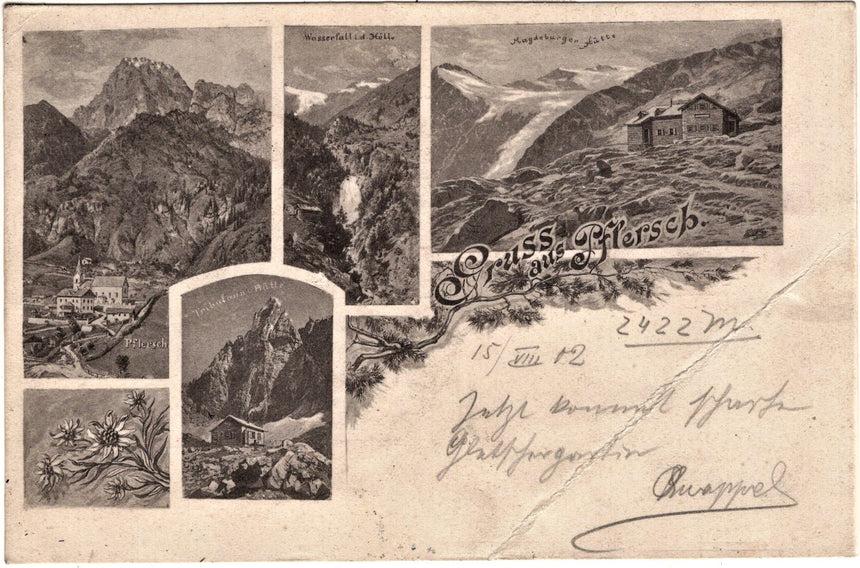 Wasserfall i.d. Höll.
Magdeburger Hütte
Pflersch
Tribulaun-Hütte
Gruss aus Pflersch.
2422 M.
15/VIII 02
Jetzt kommt scharfe
Gletschergartin
Knappel